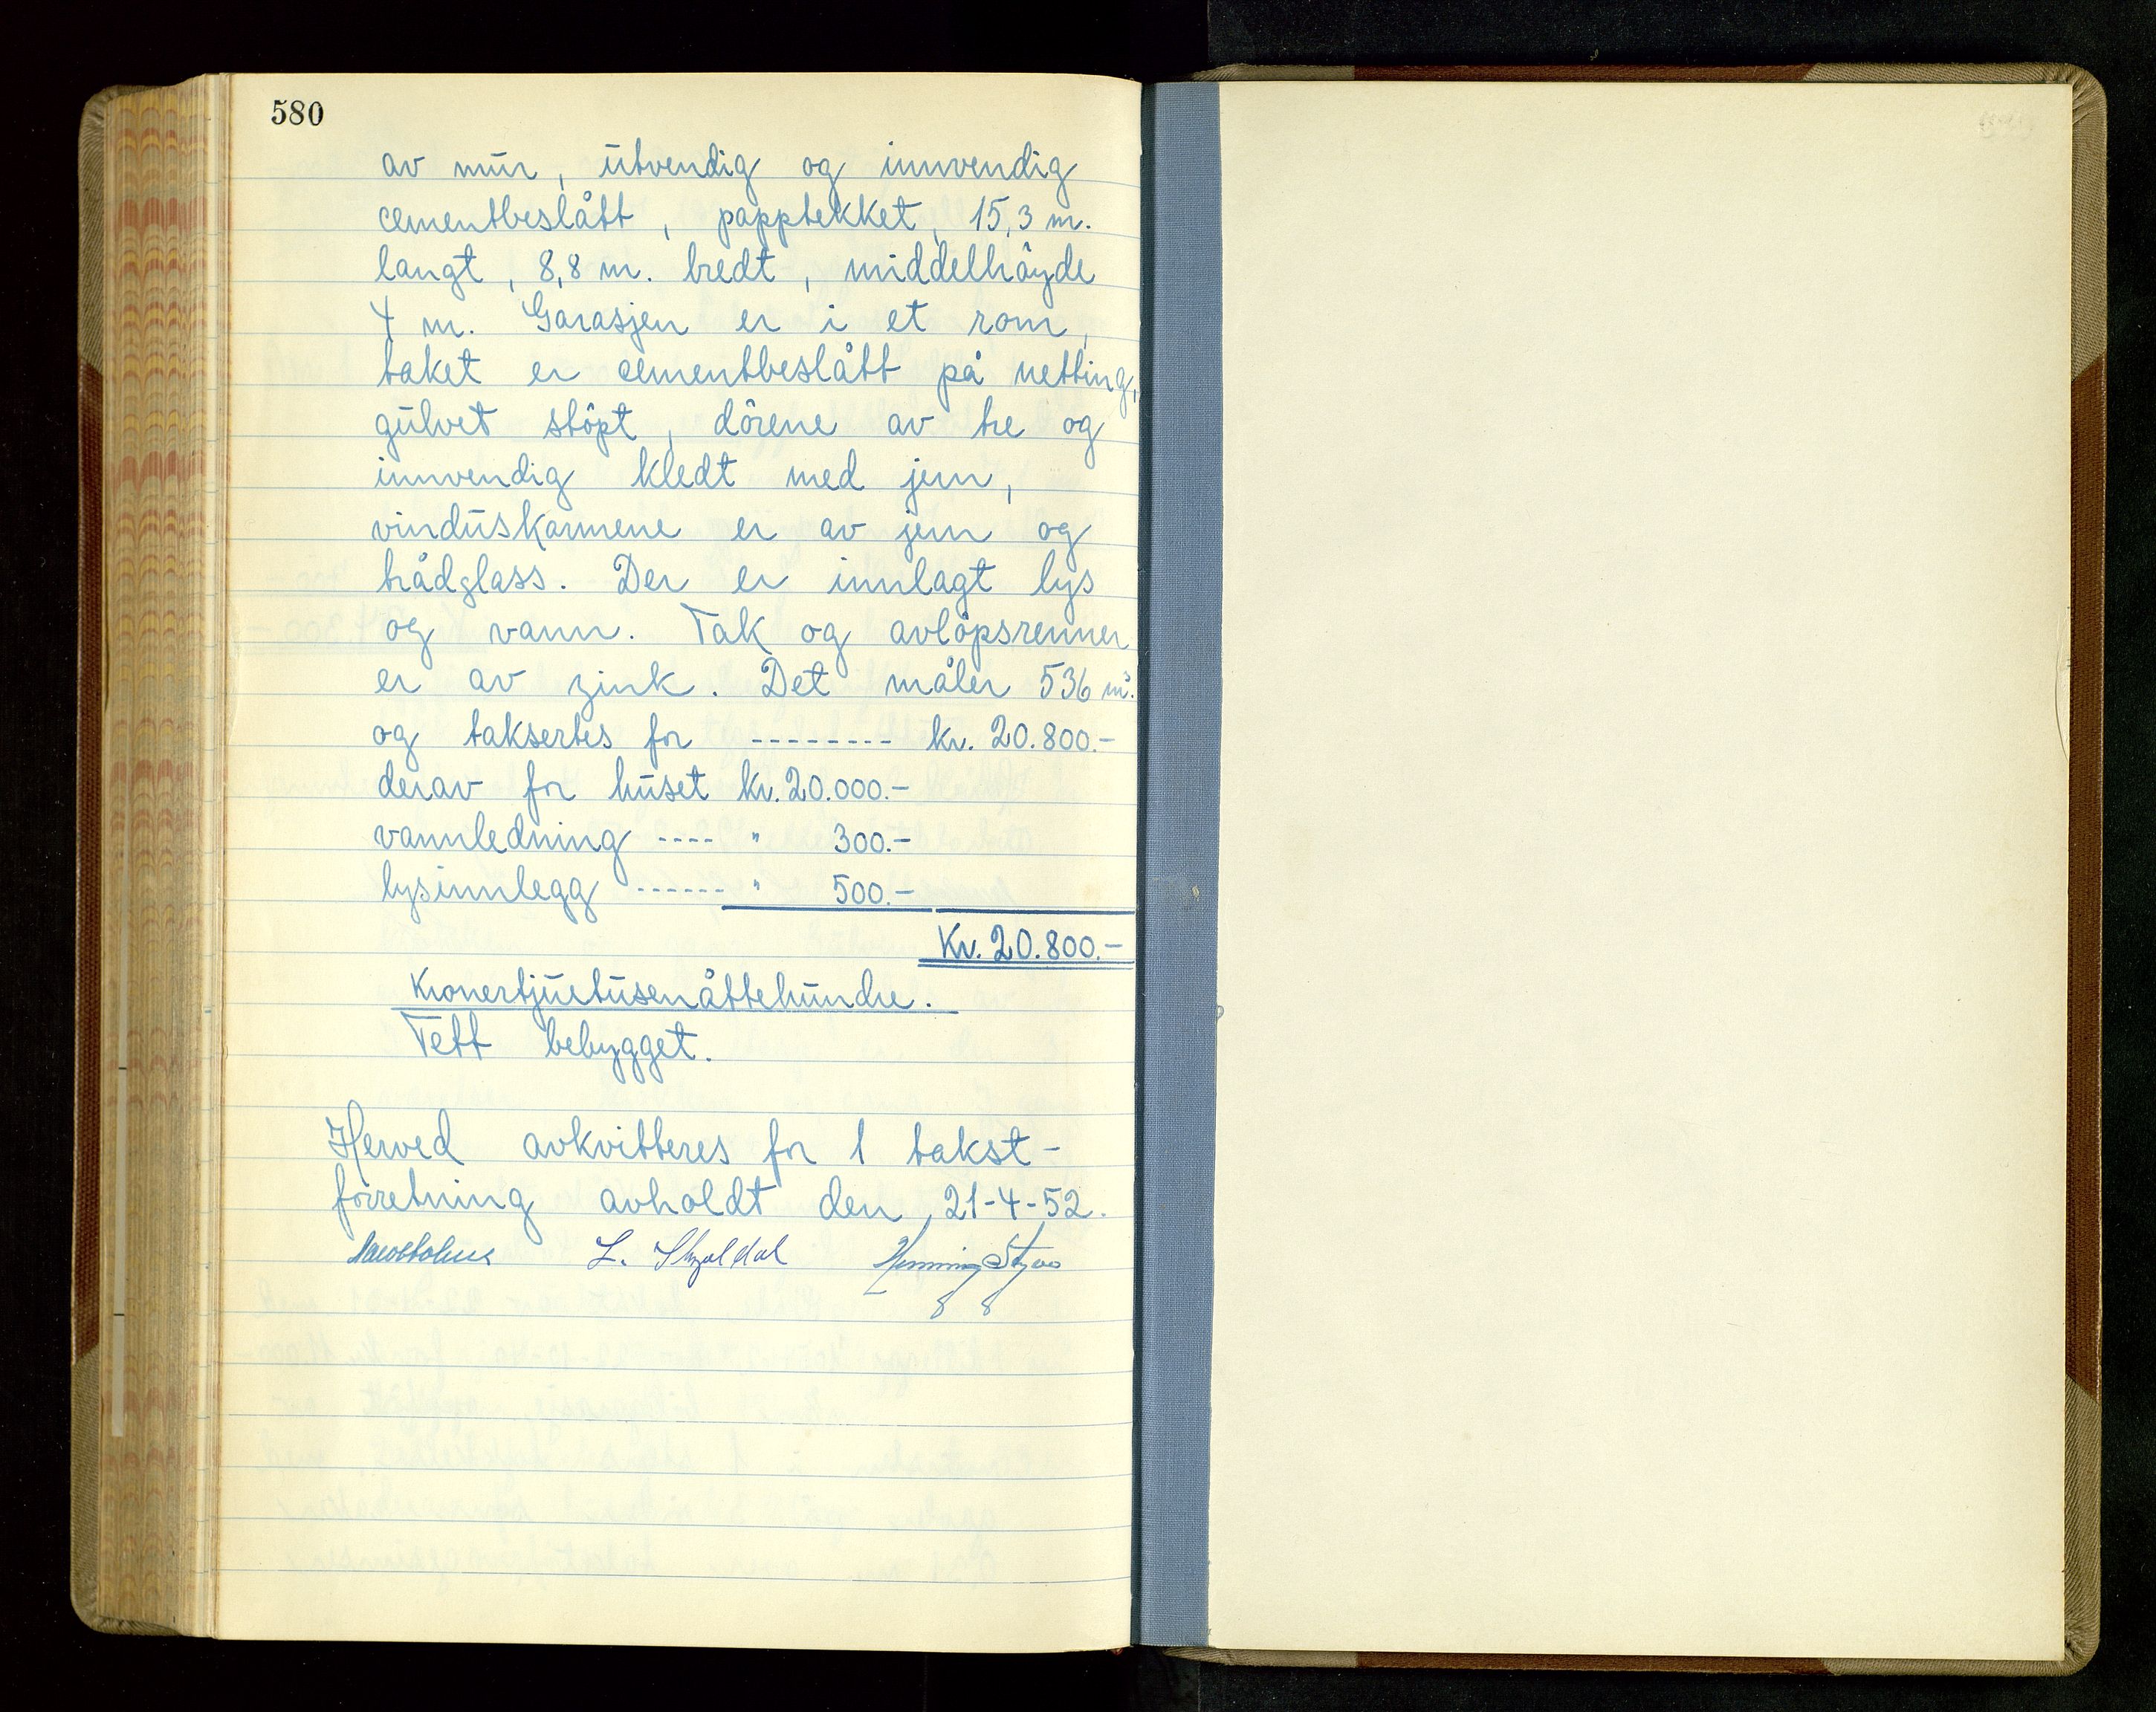 580
av mur, utvendig og innvendig
cementbeslått, papptekket, 15,3 m.
langt, 8,8 m. bredt, middelhöyde
4 m. Garasjen er i et rom,
taket er cementbeslått på netting,
gulvet stöpt, dörene av tre og
innvendig kledt med jern,
vinduskarmene er av jern og
trådglass. Der er innlagt lys
og vann. Tak og avlöpsrenner
er av zink. Det måler 536 m³.
og taksertes for -------- kr. 20.800.-
derav for huset kr. 20.000.-
vannledning ---- " 300.-
lysinnlegg ------ " 500.-
Kr. 20.800.-
Kronertjuetusenåttehundre.
Tett bebygget.
Herved avkvitteres for 1 takst-
forretning avholdt den 21-4-52.
L. Skjoldal Henning